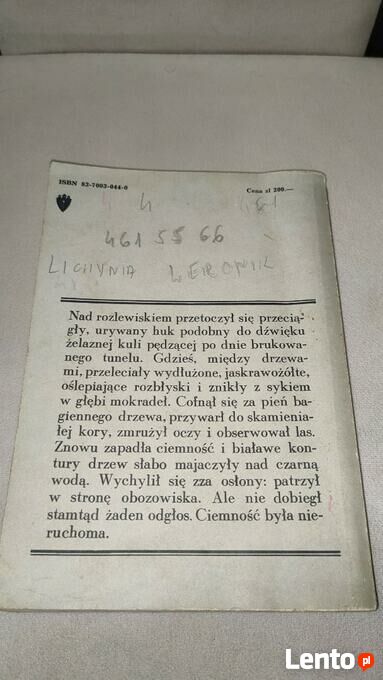 ISBN 83-7003-044-0
Cena zł 200.—
461 55 66
LICHYNIA
Nad rozlewiskiem przetoczył się przecią-
gły, urywany huk podobny do dźwięku
żelaznej kuli pędzącej po dnie brukowa-
nego tunelu. Gdzieś, między drzewa-
mi, przeleciały wydłużone, jaskrawożółte,
oślepiające rozbłyski i znikły z sykiem
w głębi mokradeł. Cofnął się za pień ba-
giennego drzewa, przywarł do skamienia-
łej kory, zmrużył oczy i obserwował las.
Znowu zapadła ciemność i białawe kon-
tury drzew słabo majaczyły nad czarną
wodą. Wychylił się zza osłony: patrzył
w stronę obozowiska. Ale nie dobiegł
stamtąd żaden odgłos. Ciemność była nie-
ruchoma.
Lento pl